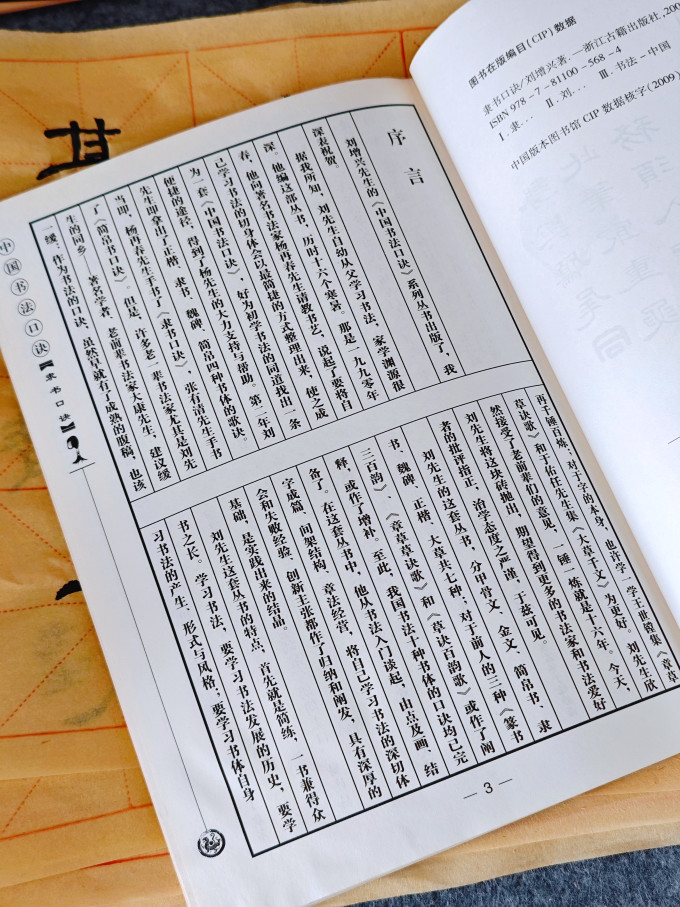 序言
刘增兴先生的《中国书法口诀》系列丛书出版了，我
深表祝贺。
据我所知，刘先生自幼从父学习书法，家学渊源很
深。他编这部丛书，历时十六个寒暑。那是一九九零年
春，他向著名书法家杨再春先生请教书艺，说起了要将自
己学习书法的切身体会以最简捷的方式整理出来，使之成
为一套《中国书法口诀》，好为初学书法的同道找出一条
便捷的途径，得到了杨先生的大力支持与帮助。第二年刘
先生即拿出了正楷、隶书、魏碑、简帛四种书体的歌诀。
当即，杨再春先生手书了《隶书口诀》，张有清先生手书
了《简帛书口诀》。但是，许多老一辈书法家尤其是刘先
生的同乡——著名学者、老前辈书法家大康先生，建议缓
一缓：作为书法的口诀，虽然早就有了成熟的腹稿，也该
再千锤百炼；对于字的本身，也许学一学王世镗集《章草
草诀歌》和于佑任先生集《大草千文》为更好。刘先生欣
然接受了老前辈们的意见，一锤一炼就是十六年。今天，
刘先生将这块砖抛出，期望得到更多的书法家和书法爱好
者的批评指正，治学态度之严谨，于兹可见。
刘先生的这套丛书，分甲骨文、金文、简帛书、隶
书、魏碑、正楷、大草共七种；对于前人的三种《篆书
三百韵》、《章草草诀歌》和《草诀百韵歌》或作了阐
释，或作了增补。至此，我国书法十种书体的口诀均已完
备了。在这套丛书中，他从书法入门谈起，由点及画、结
字成篇、间架结构、章法经营，将自己学习书法的深切体
会和失败经验、创新主张都作了归纳和阐发，具有深厚的
基础，是实践出来的结晶。
刘先生这套丛书的特点，首先就是简练，一书兼得众
书之长。学习书法，要学习书法发展的历史，要学
习书法的产生、形式与风格；要学习书体自身
中国书法口诀
【隶书口诀】
— 3 —
图书在版编目（CIP）数据
隶书口诀/刘增兴著.—浙江古籍出版社，200
ISBN 978-7-81100-568-4
Ⅰ.隶... Ⅱ.刘... Ⅲ.书法－中国
中国版本图书馆 CIP 数据核字（2009）
其